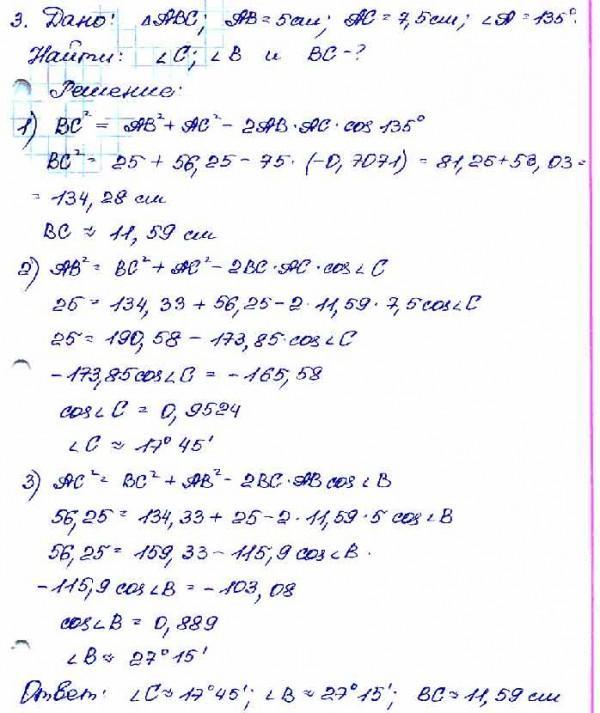 3. Дано: △ABC; AB = 5 см; AC = 7,5 см; ∠A = 135°.
Найти: ∠C; ∠B и BC - ?
Решение:
1) BC² = AB² + AC² - 2AB·AC·cos 135°
BC² = 25 + 56,25 - 75·(-0,7071) = 81,25 + 53,03 =
= 134,28 см
BC ≈ 11,59 см
2) AB² = BC² + AC² - 2BC·AC·cos∠C
25 = 134,33 + 56,25 - 2·11,59·7,5cos∠C
25 = 190,58 - 173,85·cos∠C
-173,85cos∠C = -165,58
cos∠C = 0,9524
∠C ≈ 17°45'
3) AC² = BC² + AB² - 2BC·AB cos∠B
56,25 = 134,33 + 25 - 2·11,59·5 cos∠B
56,25 = 159,33 - 115,9 cos∠B.
-115,9 cos∠B = -103,08
cos∠B = 0,889
∠B ≈ 27°15'
Ответ: ∠C ≈ 17°45'; ∠B ≈ 27°15'; BC ≈ 11,59 см